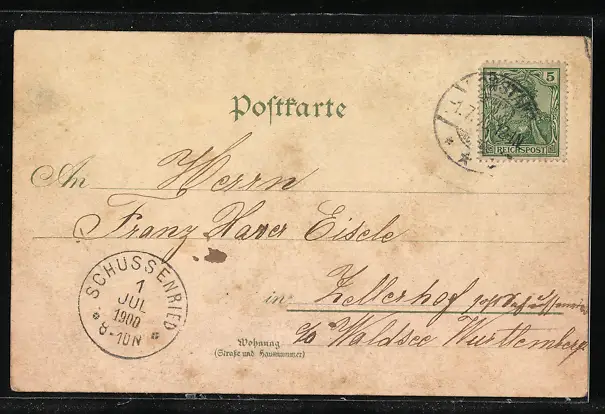 Postkarte
5
REICHSPOST
An Herrn
Franz Xaver Eisele
in Zellerhof
Waldsee Wurttemberg
Wohnung
(Straße und Hausnummer)
SCHUSSENRIED
1
JUL
1900
8-10N